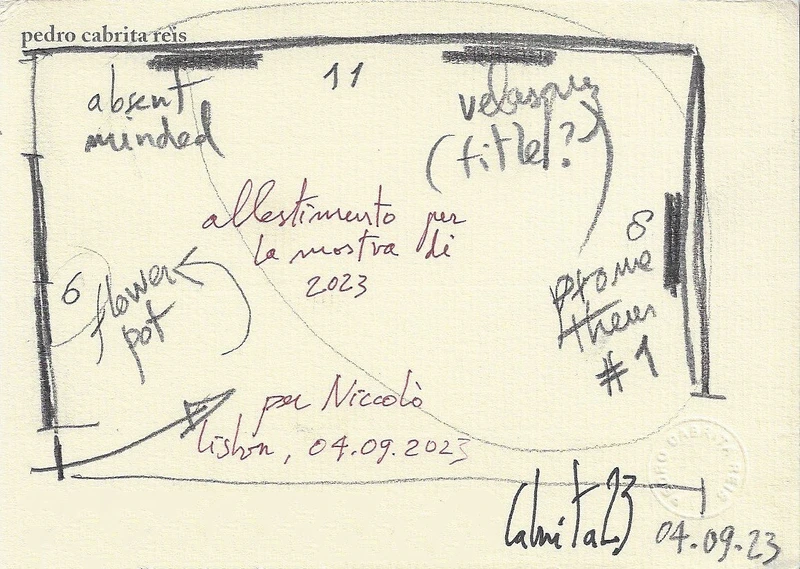 pedro cabrita reis
absent
minded
11
velasquez
(title?)
allestimento per
la mostra di
2023
8
Prome
theus
#1
6
flower
pot
per Niccolò
lisbon, 04.09.2023
PEDRO CABRITA REIS
Cabrita 23
04.09.23